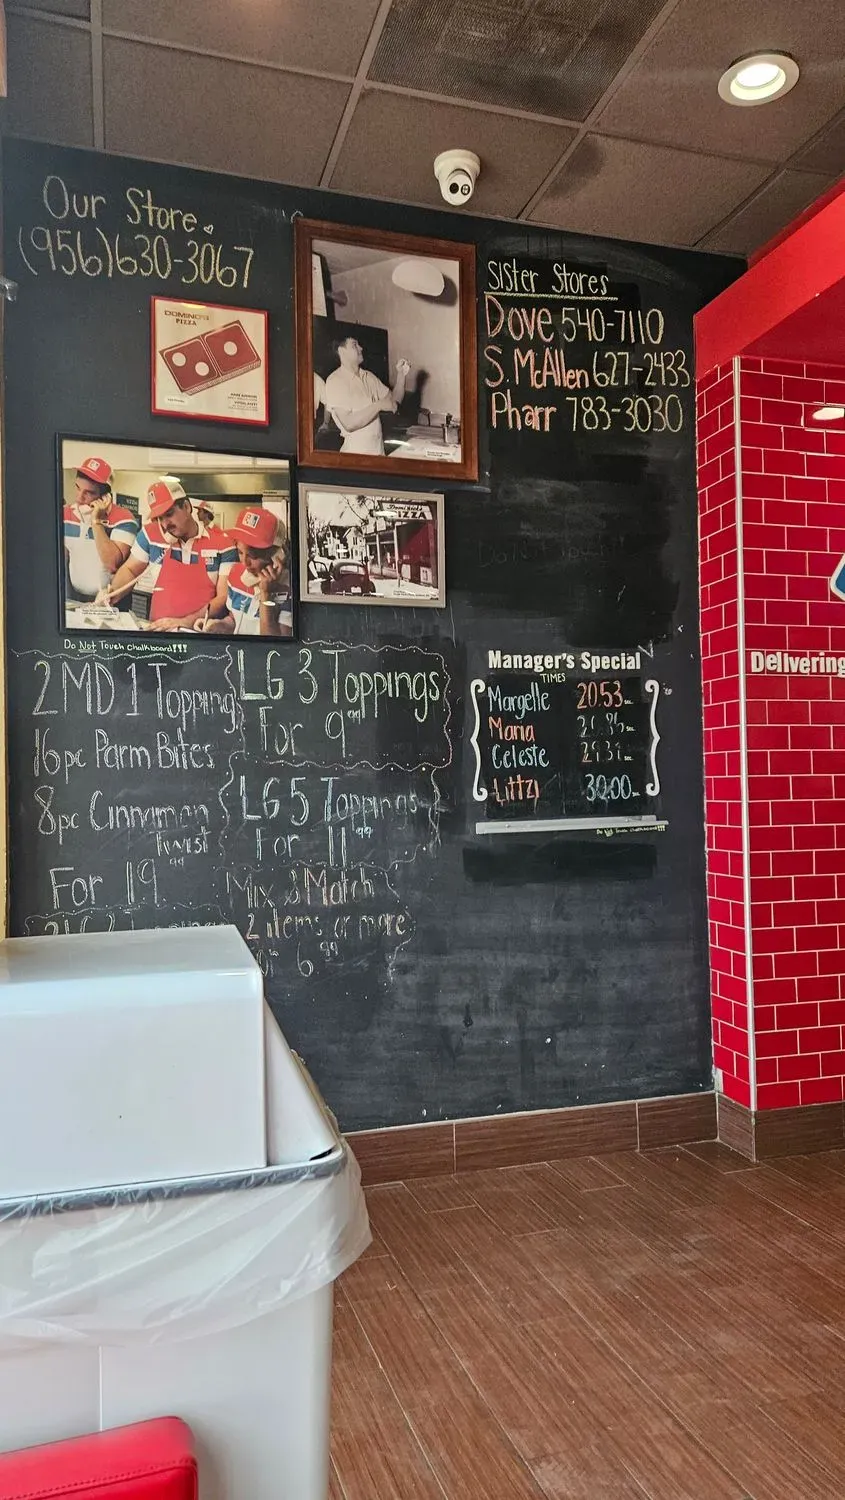 Our Store
(956)630-3067
DOMINO'S
PIZZA
Sister Stores
Dove 540-7110
S. McAllen 627-2433
Pharr 783-3030
Domino's
PIZZA
Do Not Touch Chalkboard!!!
2 MD 1 Topping
16pc Parm Bites
8pc Cinnamon
Twist
For 19 99
LG 3 Toppings
For 9 99
LG 5 Toppings
For 11 99
Mix & Match
2 items or more
for 6 99
Manager's Special
TIMES
Margelle 20.53 sec
Maria
Celeste
Littzi 30.00 sec
Do Not Touch Chalkboard!!!
Delivering